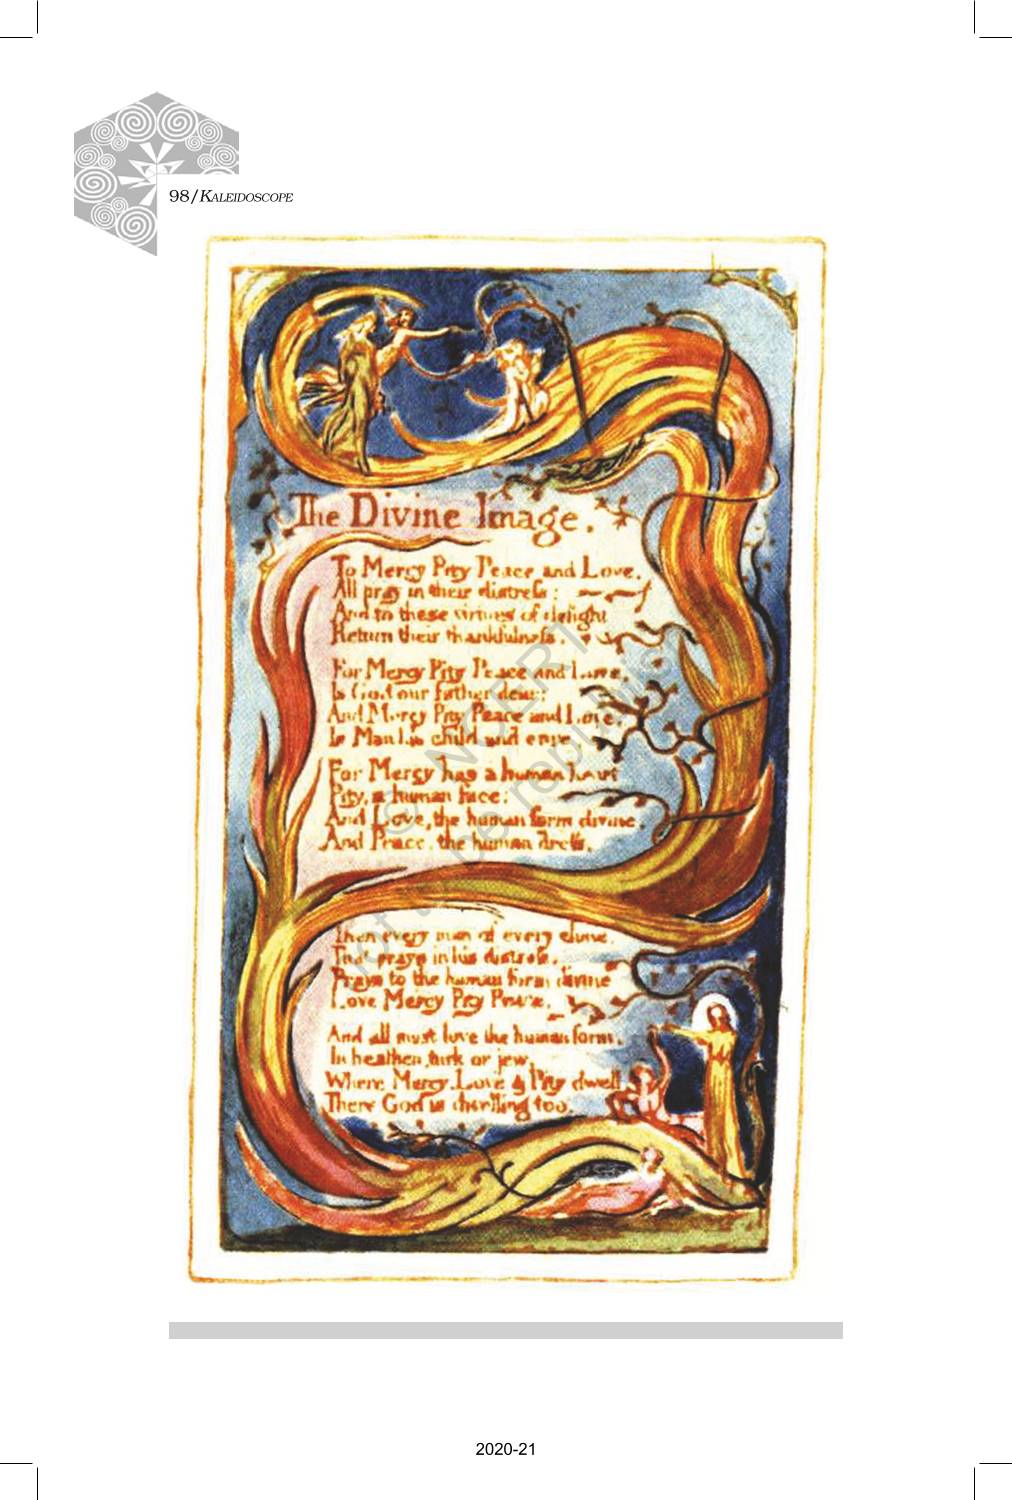 98/KALEIDOSCOPE
The Divine Image.
To Mercy Pity Peace and Love,
All pray in their distress:
And to these virtues of delight
Return their thankfulness.
For Mercy Pity Peace and Love,
Is God our father dear:
And Mercy Pity Peace and Love,
Is Man his child and care.
For Mercy has a human heart
Pity, a human face:
And Love, the human form divine,
And Peace, the human dress.
Then every man of every clime,
That prays in his distress,
Prays to the human form divine
Love Mercy Pity Peace.
And all must love the human form,
In heathen, turk or jew,
Where Mercy, Love & Pity dwell
There God is dwelling too.
© NCERT
not to be republished
2020-21